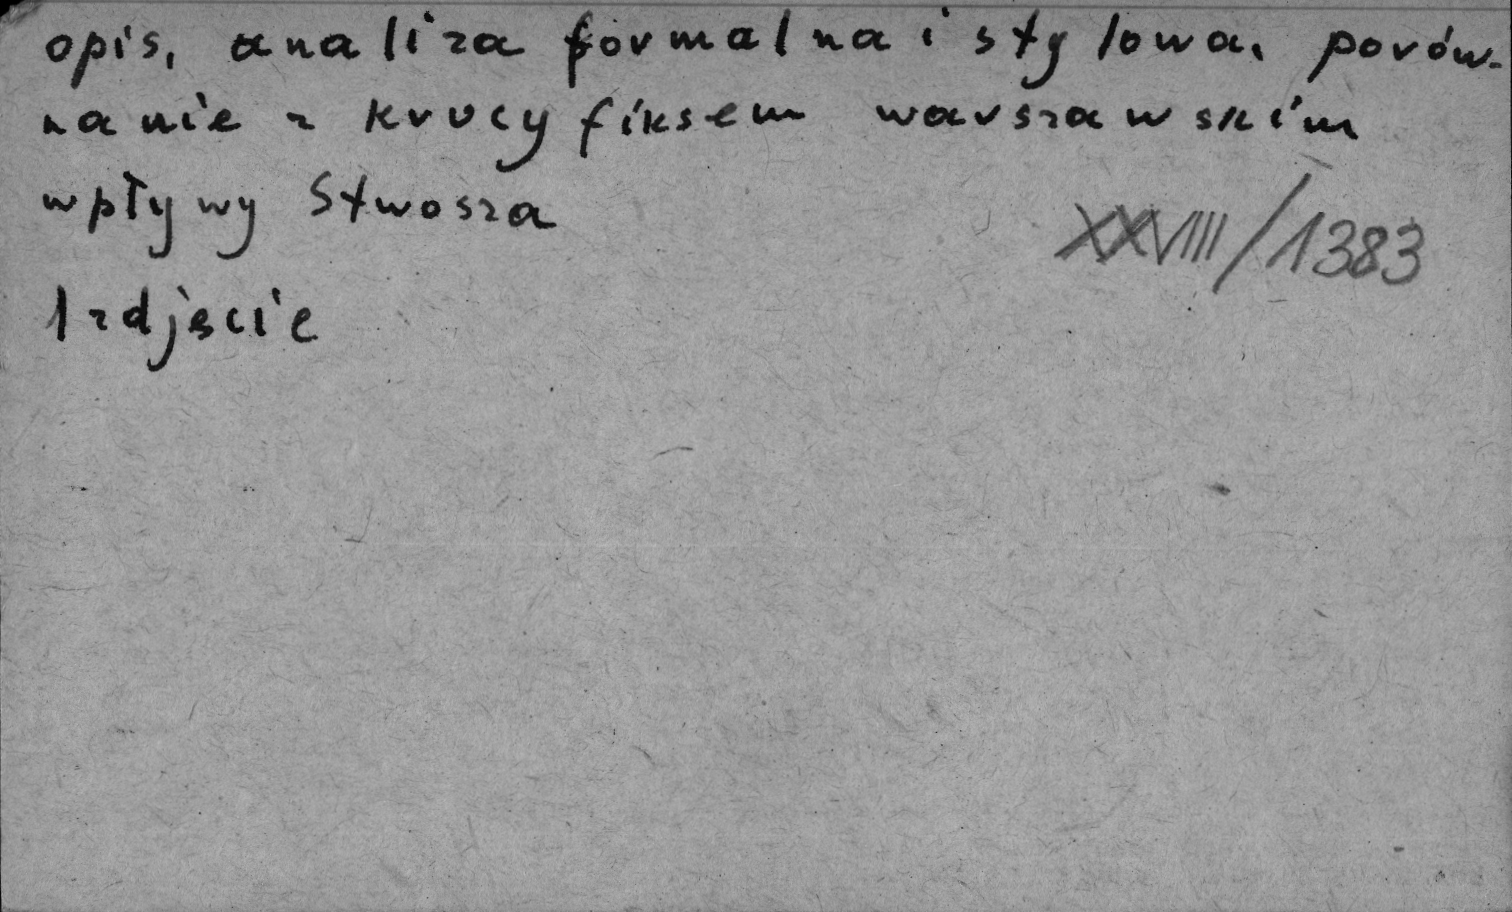 opis, analiza formalna i stylowa, porów-
nanie z krucyfiksem warszawskim
wpływy Stwosza
XXVIIII/1383
1 zdjęcie